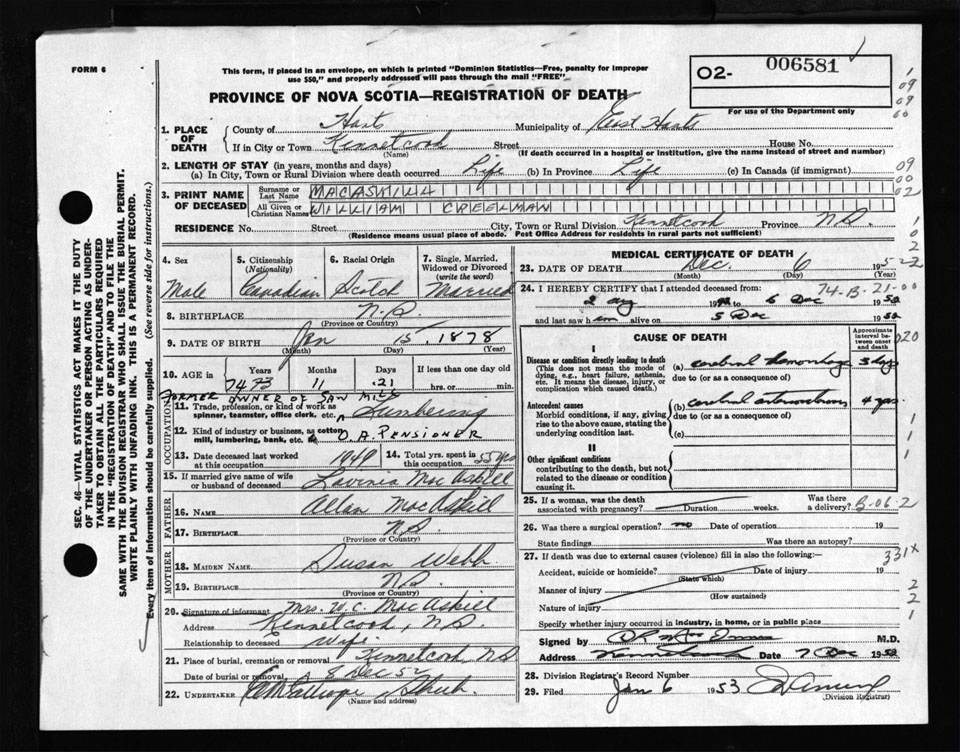 FORM 6
This form, if placed in an envelope, on which is printed "Dominion Statistics—Free, penalty for improper
use $50," and properly addressed will pass through the mail "FREE".
02- 006581
For use of the Department only
PROVINCE OF NOVA SCOTIA—REGISTRATION OF DEATH
1. PLACE OF DEATH
County of Hants Municipality of East Hants
If in City or Town Kennetcook Street House No.
(Name) (If death occurred in a hospital or Institution, give the name instead of street and number)
2. LENGTH OF STAY (in years, months and days)
(a) In City, Town or Rural Division where death occurred Life (b) In Province Life (c) In Canada (if immigrant)
3. PRINT NAME OF DECEASED
Surname or Last Name MACASKILL
All Given or Christian Names WILLIAM CREELMAN
RESIDENCE No. Street City, Town or Rural Division Kennetcook Province N.S.
(Residence means usual place of abode. Post Office Address for residents in rural parts not sufficient)
4. Sex Male
5. Citizenship (Nationality) Canadian
6. Racial Origin Scotch
7. Single, Married, Widowed or Divorced (write the word) Married
8. BIRTHPLACE N.S.
(Province or Country)
9. DATE OF BIRTH Jan 15 1878
(Month) (Day) (Year)
10. AGE in Years Months Days If less than one day
74 73 11 21 hrs. or min.
FORMER OWNER OF SAW MILL
11. Trade, profession, or kind of work as spinner, teamster, office clerk, etc. Lumbering
12. Kind of industry or business, as cotton mill, lumbering, bank, etc. O.A. PENSIONER
13. Date deceased last worked at this occupation 1949
14. Total yrs. spent in this occupation 55 yrs
15. If married give name of wife or husband of deceased Lavinia MacAskill
16. Name Allan MacAskill
17. Birthplace N.S.
(Province or Country)
18. MAIDEN NAME Susan Webb
19. BIRTHPLACE N.S.
(Province or Country)
20. Signature of informant Mrs. W.C. MacAskill
Address Kennetcook, N.S.
Relationship to deceased Wife
21. Place of burial, cremation or removal Kennetcook, N.S.
Date of burial or removal 8 Dec 52
22. UNDERTAKER
(Name and address)
OCCUPATION
FATHER
MOTHER
MEDICAL CERTIFICATE OF DEATH
23. DATE OF DEATH Dec. 6 1952
(Month) (Day) (Year)
24. I HEREBY CERTIFY that I attended deceased from: 74-B-21-00
2 Aug 19 to 6 Dec 1952
and last saw him alive on 5 Dec 1952
CAUSE OF DEATH
Approximate interval between onset and death
I
Disease or condition directly leading to death
(This does not mean the mode of dying, e.g., heart failure, asthenia, etc. It means the disease, injury, or complication which caused death.)
(a) cerebral hemorrhage 3 day
due to (or as a consequence of)
Antecedent causes
Morbid conditions, if any, giving rise to the above cause, stating the underlying condition last.
(b) cerebral 4 yrs.
due to (or as a consequence of)
(c)
II
Other significant conditions
contributing to the death, but not related to the disease or condition causing it.
25. If a woman, was the death associated with pregnancy? Duration weeks. Was there a delivery? B-06-2
26. Was there a surgical operation? no Date of operation 19
State findings Was there an autopsy?
27. If death was due to external causes (violence) fill in also the following:— 331x
Accident, suicide or homicide? Date of injury 19
(State which)
Manner of injury
(How sustained)
Nature of injury
Specify whether injury occurred in industry, in home, or in public place
Signed by M.D.
Address Kennetcook Date 7 Dec 1952
28. Division Registrar's Record Number
29. Filed Jan 6 1953
(Division Registrar)
SEC. 46—VITAL STATISTICS ACT MAKES IT THE DUTY
OF THE UNDERTAKER OR PERSON ACTING AS UNDER-
TAKER TO OBTAIN ALL THE PARTICULARS REQUIRED
IN THE "REGISTRATION OF DEATH" AND TO FILE THE
SAME WITH THE DIVISION REGISTRAR WHO SHALL ISSUE THE BURIAL PERMIT.
WRITE PLAINLY WITH UNFADING INK. THIS IS A PERMANENT RECORD.
Every item of information should be carefully supplied. (See reverse side for instructions.)